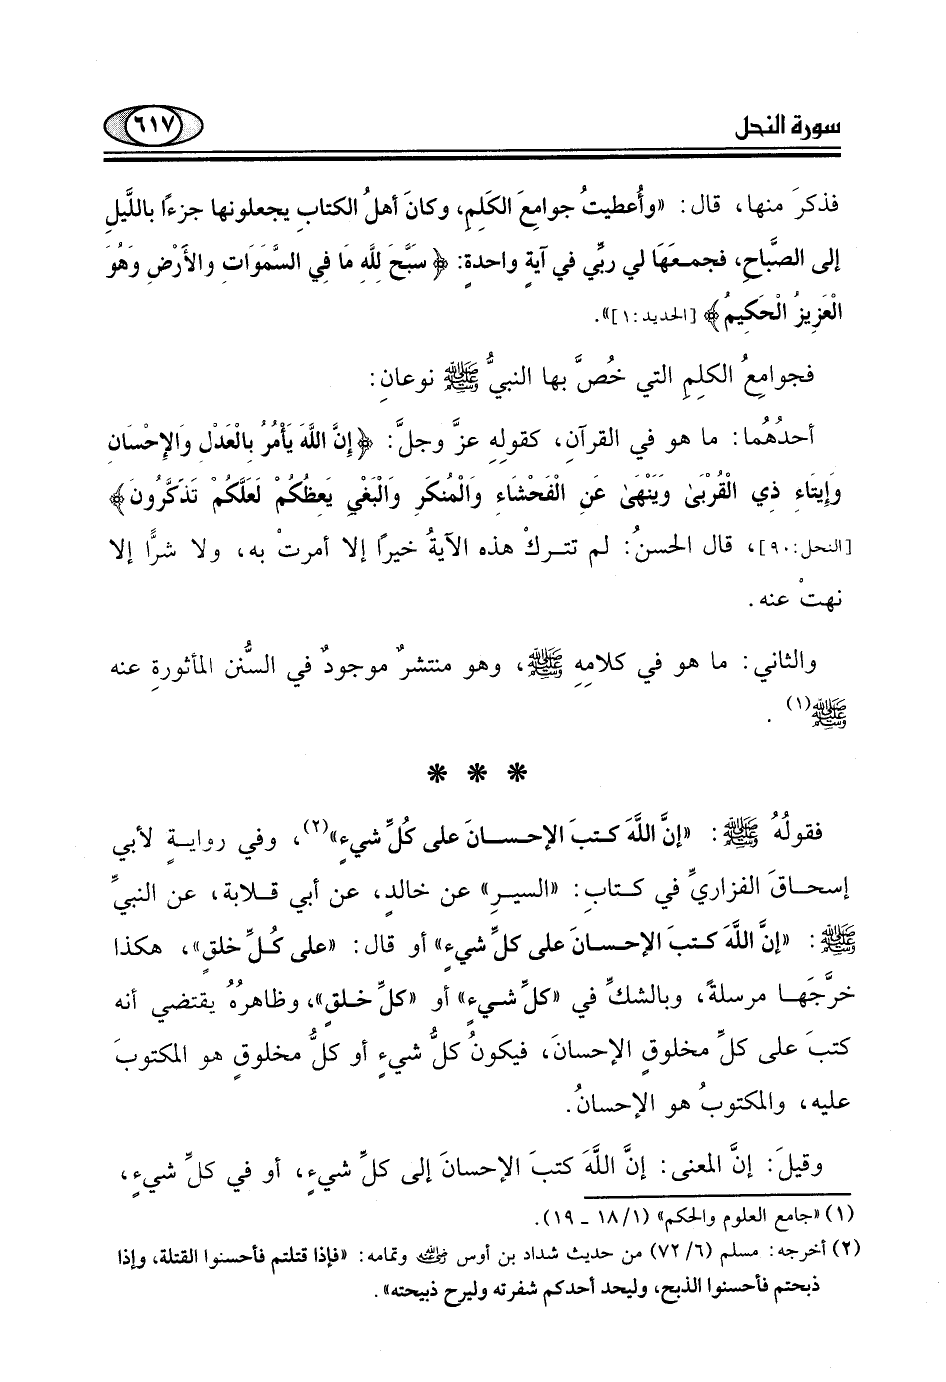 سورة النحل
٦١٧
فذكرَ منها، قال: «وأُعطيتُ جوامعَ الكَلِمِ، وكانَ أهلُ الكتابِ يجعلونها جزءًا باللَّيلِ
إلى الصَّباحِ، فجمعَهَا لي ربِّي في آيةٍ واحدةٍ: ﴿سَبَّحَ لِلَّهِ مَا فِي السَّمَوَاتِ والأَرْضِ وَهُوَ
الْعَزِيزُ الْحَكِيمُ﴾ [الحديد:١]».
فجوامعُ الكلِمِ التي خُصَّ بها النبيُّ ﷺ نوعانِ:
أحدُهُما: ما هو في القرآنِ، كقولهِ عزَّ وجلَّ: ﴿إِنَّ اللَّهَ يَأْمُرُ بِالْعَدْلِ وَالإِحْسَانِ
وَإِيتَاءِ ذِي الْقُرْبَىٰ وَيَنْهَىٰ عَنِ الْفَحْشَاءِ وَالْمُنكَرِ وَالْبَغْيِ يَعِظُكُمْ لَعَلَّكُمْ تَذَكَّرُونَ﴾
[النحل:٩٠]، قال الحسنُ: لم تتركْ هذه الآيةُ خيرًا إلا أمرتْ به، ولا شرًّا إلا
نهتْ عنه.
والثاني: ما هو في كلامِهِ ﷺ، وهو منتشرٌ موجودٌ في السُّننِ المأثورةِ عنه
ﷺ(١).
* * *
فقولُهُ ﷺ: «إنَّ اللَّهَ كتبَ الإحسانَ على كُلِّ شيءٍ»(٢)، وفي روايةٍ لأبي
إسحاقَ الفزاريِّ في كتابِ: «السيرِ» عن خالدٍ، عن أبي قلابةَ، عن النبيِّ
ﷺ: «إنَّ اللَّهَ كتبَ الإحسانَ على كلِّ شيءٍ» أو قال: «على كُلِّ خلقٍ»، هكذا
خرَّجَها مرسلةً، وبالشكِّ في «كلِّ شيءٍ» أو «كلِّ خلقٍ»، وظاهرُهُ يقتضي أنه
كتبَ على كلِّ مخلوقٍ الإحسانَ، فيكونُ كلُّ شيءٍ أو كلُّ مخلوقٍ هو المكتوبَ
عليه، والمكتوبُ هو الإحسانُ.
وقيلَ: إنَّ المعنى: إنَّ اللَّهَ كتبَ الإحسانَ إلى كلِّ شيءٍ، أو في كلِّ شيءٍ،
(١) «جامع العلوم والحكم» (١/ ١٨ ـ ١٩).
(٢) أخرجه: مسلم (٦/ ٧٢) من حديث شداد بن أوس رضي الله عنه وتمامه: «فإذا قتلتم فأحسنوا القتلة، وإذا
ذبحتم فأحسنوا الذبح، وليحد أحدكم شفرته وليرح ذبيحته».